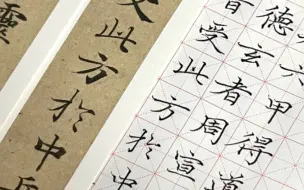 六甲得道
德玄者周宣
受此方於中
此方於中
靈